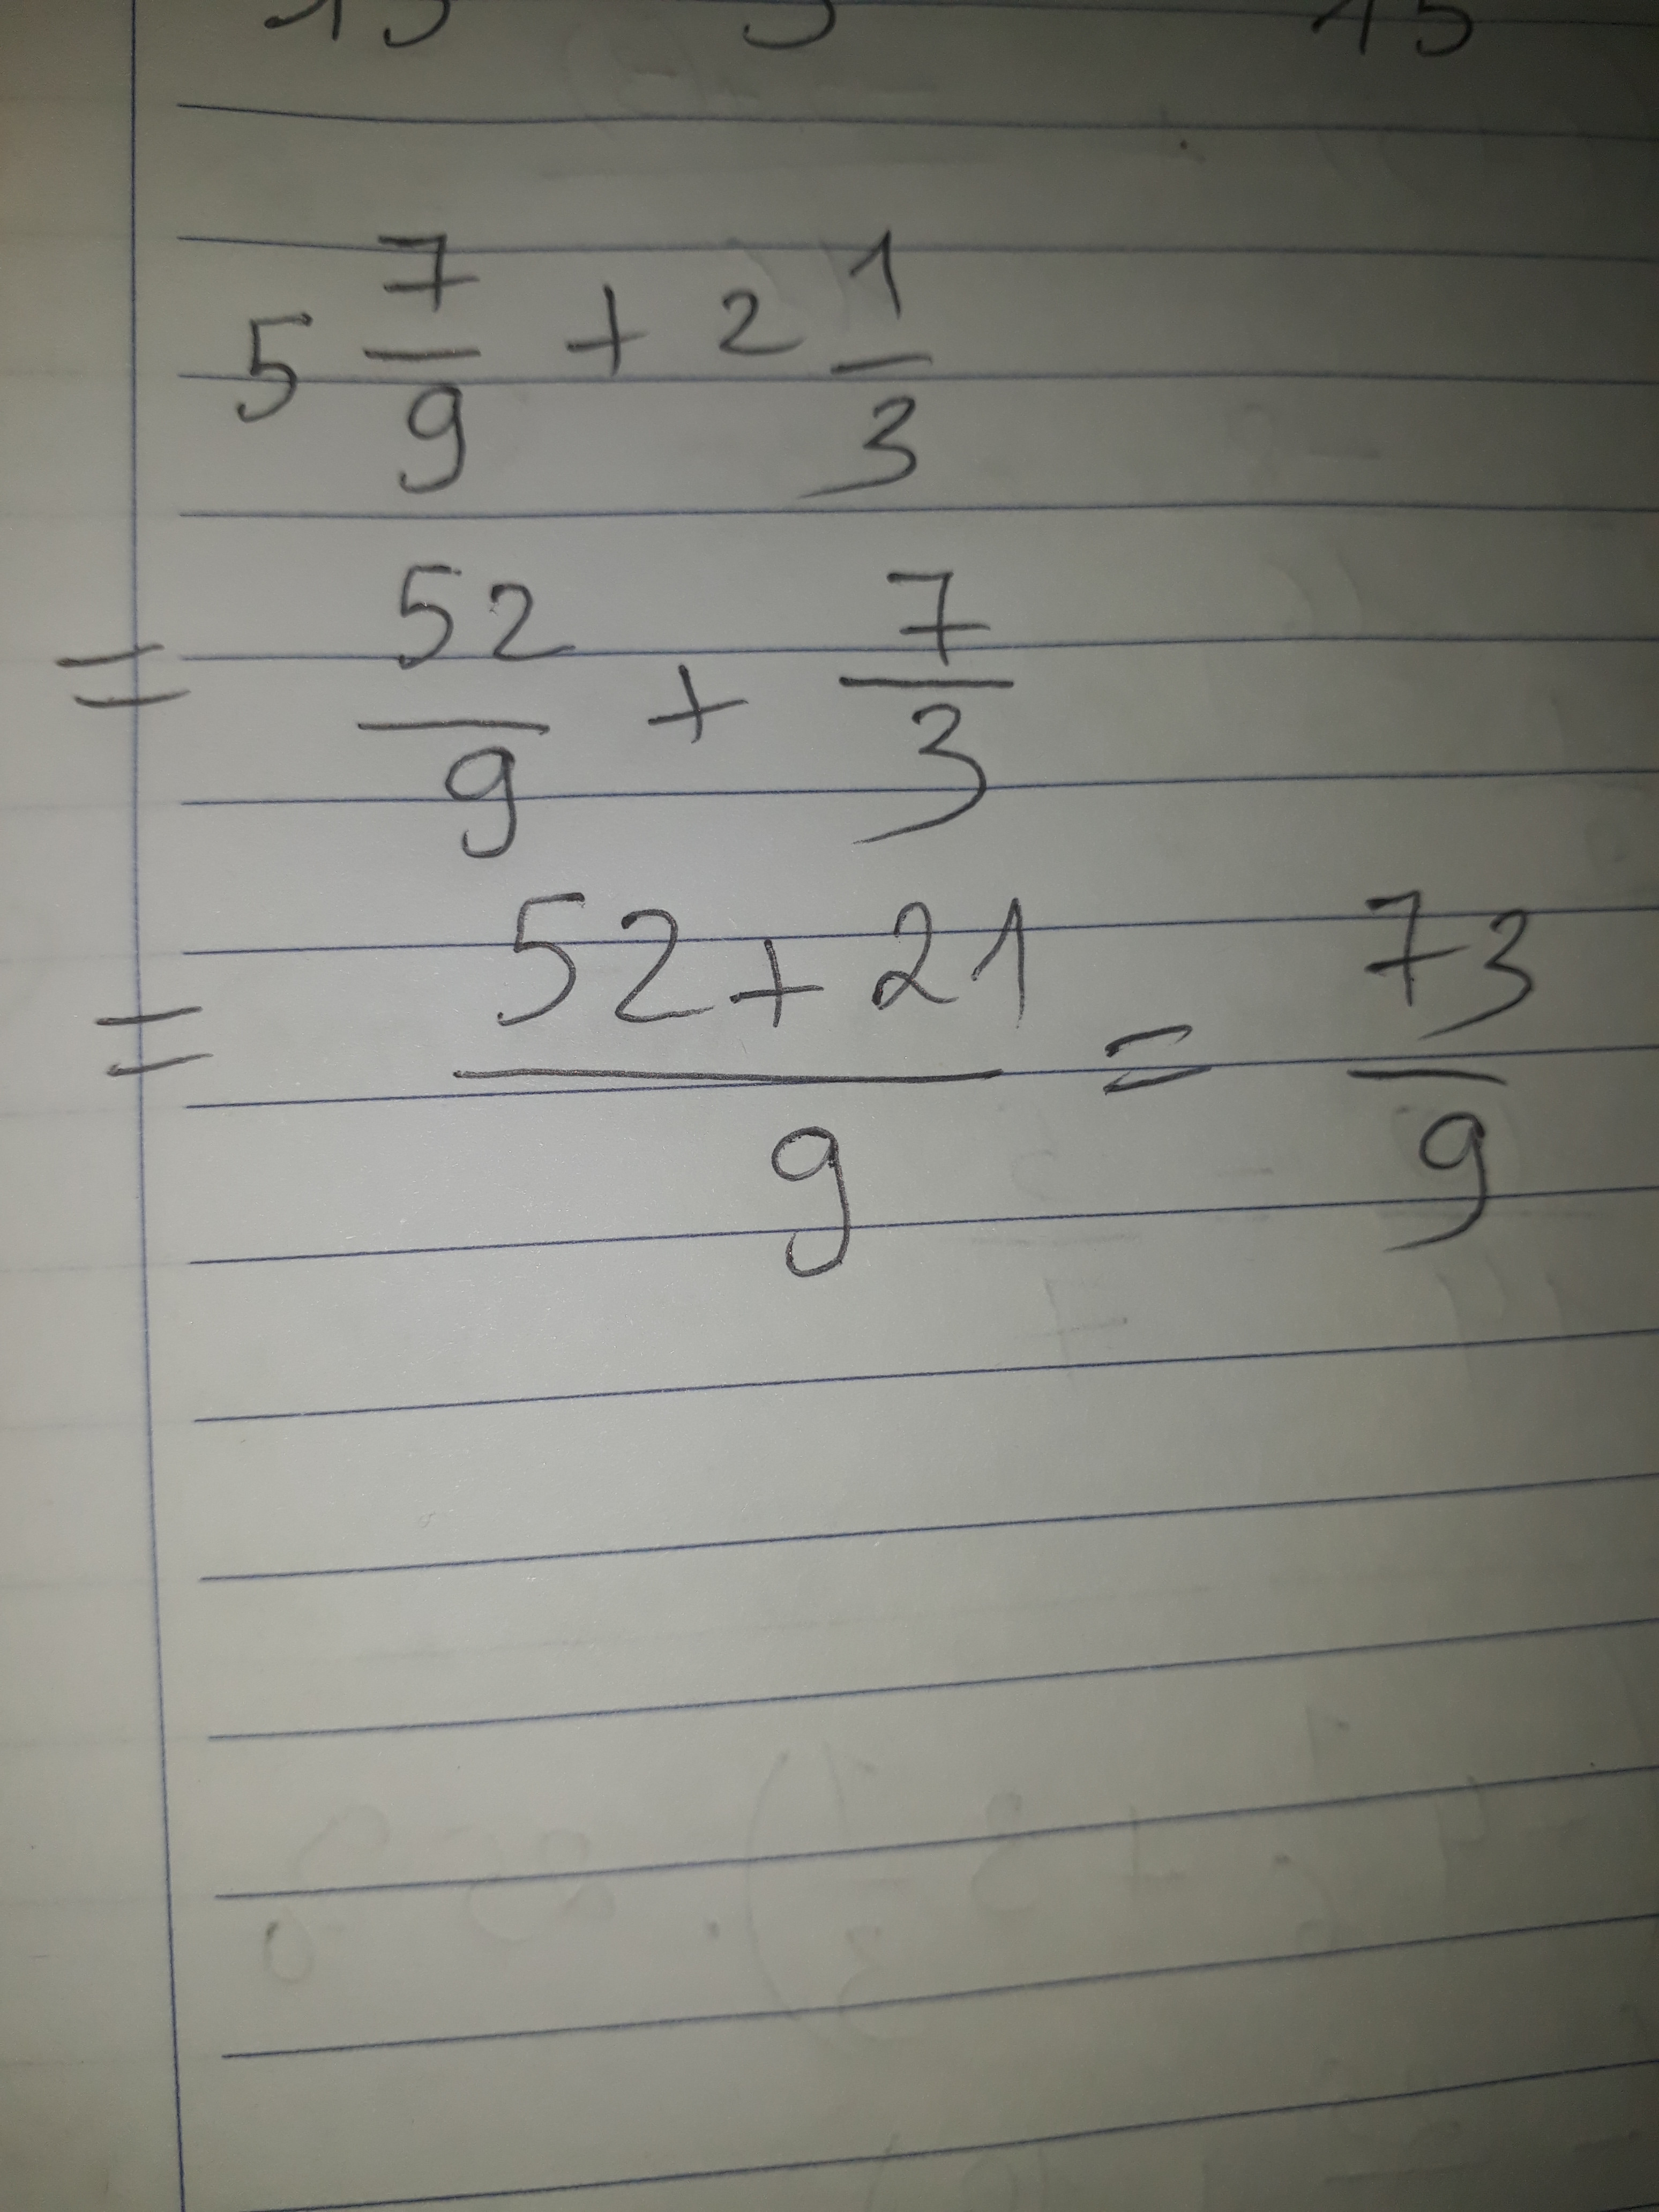 5 7/9 + 2 1/3
= 52/9 + 7/3
= (52+21)/9 = 73/9